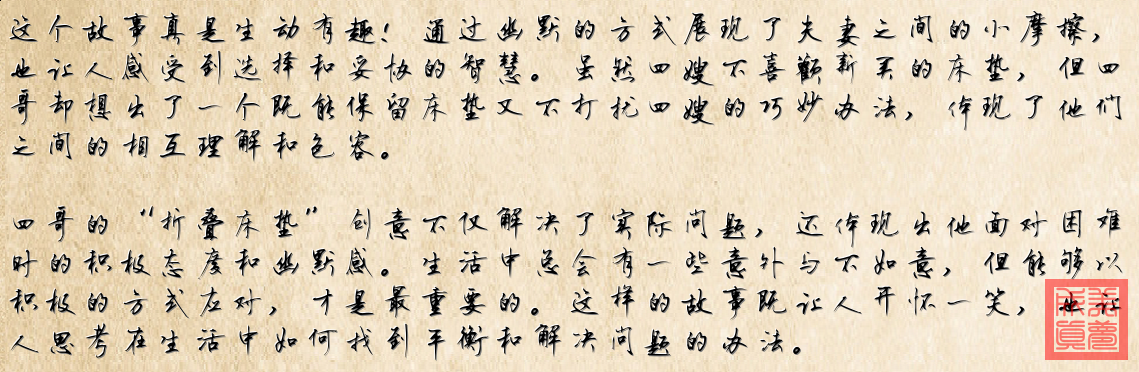 这个故事真是生动有趣！通过幽默的方式展现了夫妻之间的小摩擦，
也让人感受到选择和妥协的智慧。虽然四嫂不喜欢新买的床垫，但四
哥却想出了一个既能保留床垫又不打扰四嫂的巧妙办法，体现了他们
之间的相互理解和包容。
四哥的“折叠床垫”创意不仅解决了实际问题，还体现出他面对困难
时的积极态度和幽默感。生活中总会有一些意外与不如意，但能够以
积极的方式应对，才是最重要的。这样的故事既让人开怀一笑，也让
人思考在生活中如何找到平衡和解决问题的办法。